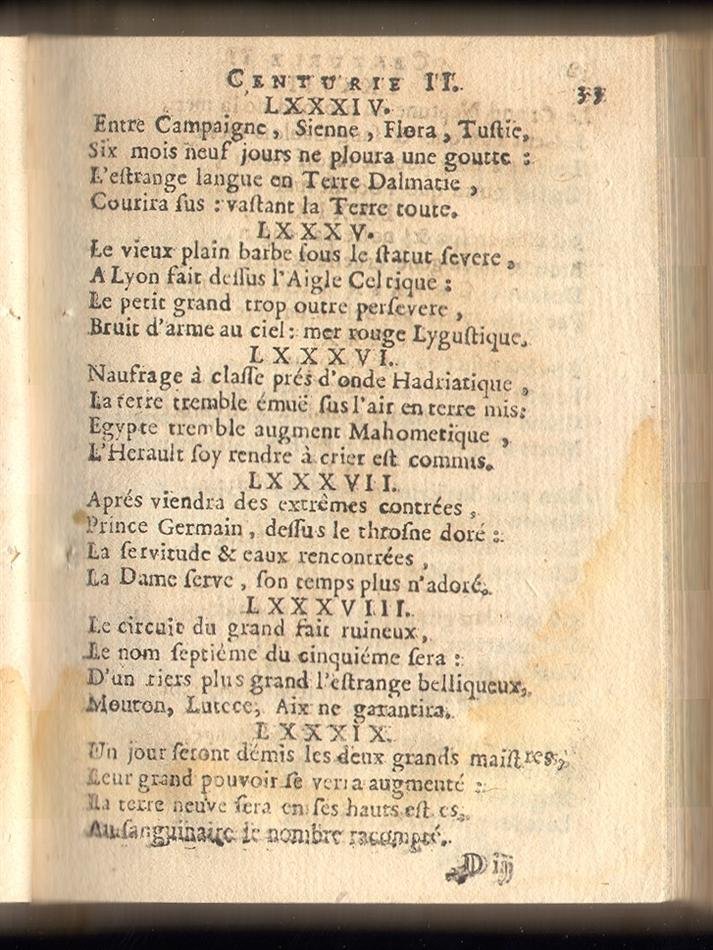 CENTURIE II. 33
LXXXIV.
Entre Campaigne, Sienne, Flora, Tustie,
Six mois neuf jours ne ploura une goutte :
L'eſtrange langue en Terre Dalmatie,
Courira ſus : vaſtant la Terre toute.
LXXXV.
Le vieux plain barbe ſous le ſtatut ſevere,
A Lyon fait deſſus l'Aigle Celtique :
Le petit grand trop outre perſevere,
Bruit d'arme au ciel : mer rouge Lyguſtique.
LXXXVI.
Naufrage à claſſe prés d'onde Hadriatique,
La terre tremble émuë ſus l'air en terre mis:
Egypte tremble augment Mahometique,
L'Herault ſoy rendre à crier eſt commis.
LXXXVII.
Aprés viendra des extrêmes contrées,
Prince Germain, deſſus le throſne doré :
La ſervitude & eaux rencontrées,
La Dame ſerve, ſon temps plus n'adoré.
LXXXVIII.
Le circuit du grand fait ruineux,
Le nom ſeptiéme du cinquiéme ſera :
D'un tiers plus grand l'eſtrange belliqueux,
Mouton, Lutece, Aix ne garantira.
LXXXIX.
Un jour ſeront démis les deux grands maiſtres,
Leur grand pouvoir ſe verra augmenté :
La terre neuve ſera en ſes hauts eſtes,
Au ſanguinaire le nombre racompté.
D iij